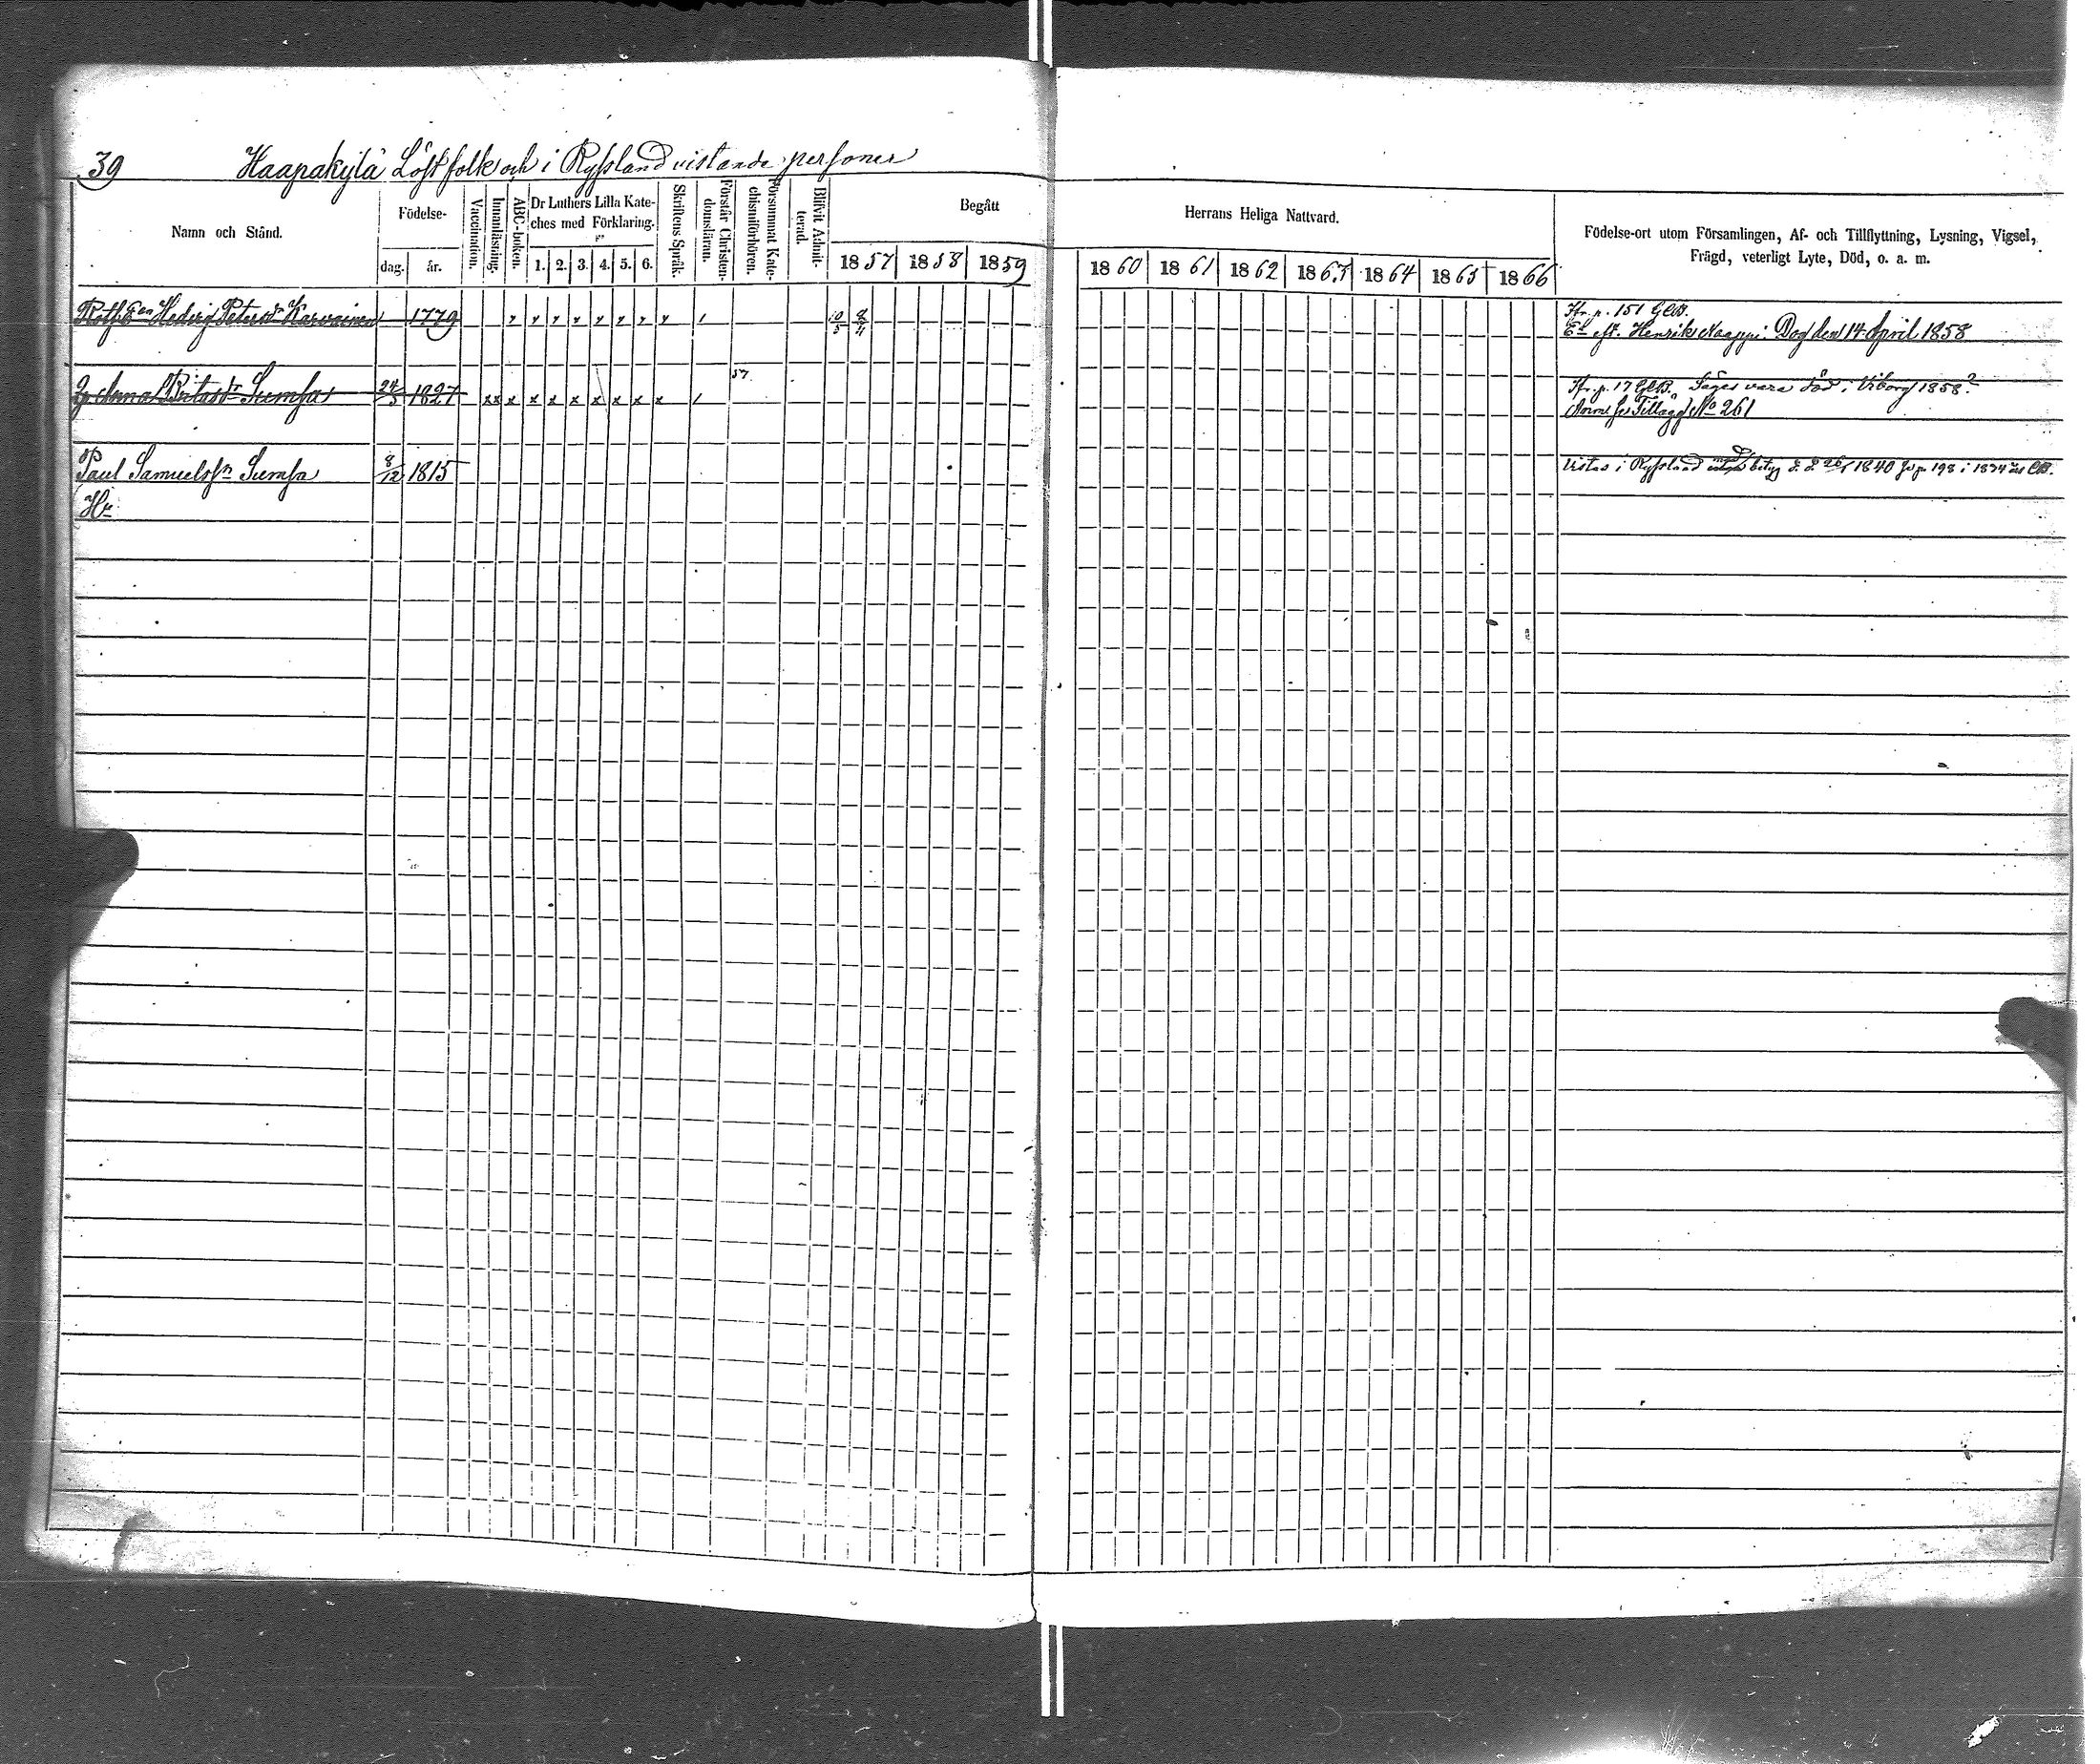 39 Haapakylä Löst folk och i Ryssland vistande personer
Namn och Stånd.
Födelse-
dag. år.
Vaccination.
Innanläsning.
ABC-boken.
Dr Luthers Lilla Kate-
ches med Förklaring.
1. 2. 3. 4. 5. 6.
Skriftens Språk.
Förstår Christen-
domsläran.
Försummat Kate-
chismiförhören.
Blifvit Admit-
terad.
Begått
1857 1858 1859
Herrans Heliga Nattvard.
1860 1861 1862 1863 1864 1865 1866
Födelse-ort utom Församlingen, Af- och Tillflyttning, Lysning, Vigsel,
Frägd, veterligt Lyte, Död, o. a. m.
Hedvig Petersdr Karvainen 1779 x x x x x x x x / 10/5
Fr. p. 151 GCB.
Eft. Henrik Dog den 14 April 1858
Anna Sumsa 24/5 1827 xx x x x x x x x x / 57
Fr. p. 17 GCB. Säges vara död i Viborg 1858?
Tillägg No 261
Paul Samuelsn Sumsa 8/12 1815
vistas i Ryssland med betyg d. d. 1840 p. 198 i
Hu